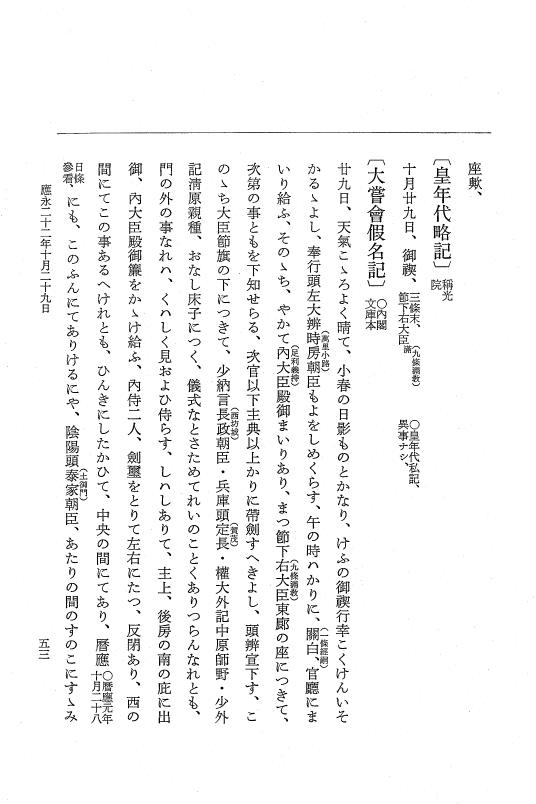 座歟、
〔皇年代略記〕稱光院
十月廿九日、御禊、三條末、節下右大臣滿(九條滿敎)　〇皇年代私記、異事ナシ、
〔大嘗會假名記〕〇內閣文庫本
廿九日、天氣こゝろよく晴て、小春の日影ものとかなり、けふの御禊行幸こくけんいそ
かるゝよし、奉行頭左大辨時房(萬里小路)朝臣もよをしめくらす、午の時ハかりに、關白(一條經嗣)、官廳にま
いり給ふ、そのゝち、やかて內大臣(足利義持)殿御まいりあり、まつ節下右大臣(九條滿敎)東廊の座につきて、
次第の事ともを下知せらる、次官以下主典以上かりに帶劍すへきよし、頭辨宣下す、こ
のゝち大臣節旗の下につきて、少納言長政(西坊城)朝臣・兵庫頭定長(賀茂)・權大外記中原師野・少外
記淸原親種、おなし床子につく、儀式なとさためてれいのことくありつらんなれとも、
門の外の事なれハ、くハしく見およひ侍らす、しハしありて、主上、後房の南の庇に出
御、內大臣殿御簾をかゝけ給ふ、內侍二人、劍璽をとりて左右にたつ、反閇あり、西の
間にてこの事あるへけれとも、ひんきにしたかひて、中央の間にてあり、曆應〇曆應元年十月二十八
日條參看、にも、このふんにてありけるにや、陰陽頭泰家(土御門)朝臣、あたりの間のすのこにすゝみ
應永二十二年十月二十九日
五三